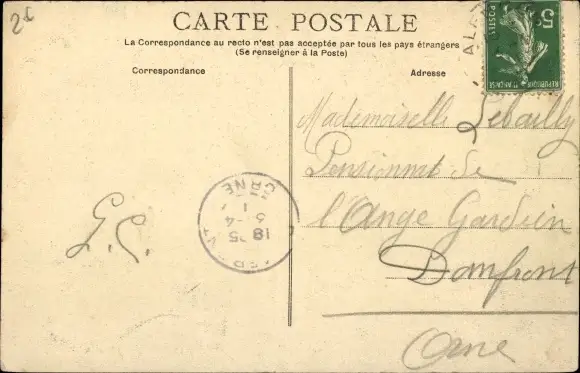 2€
CARTE POSTALE
La Correspondance au recto n'est pas acceptée par tous les pays étrangers
(Se renseigner à la Poste)
Correspondance
Adresse
5c
POSTES
REPUBLIQUE FRANÇAISE
Mademoiselle Lebailly
Pensionnat de
l'Ange Gardien
Domfront
Orne
G. L.
18 35
6 - 4
ORNE